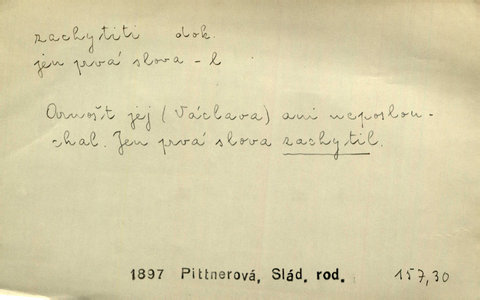 zachytiti dok.
jen prvá slova - l
Arnošt jej (Václava) ani neposlou-
chal. Jen prvá slova zachytil.
1897 Pittnerová, Slád. rod. 157,30